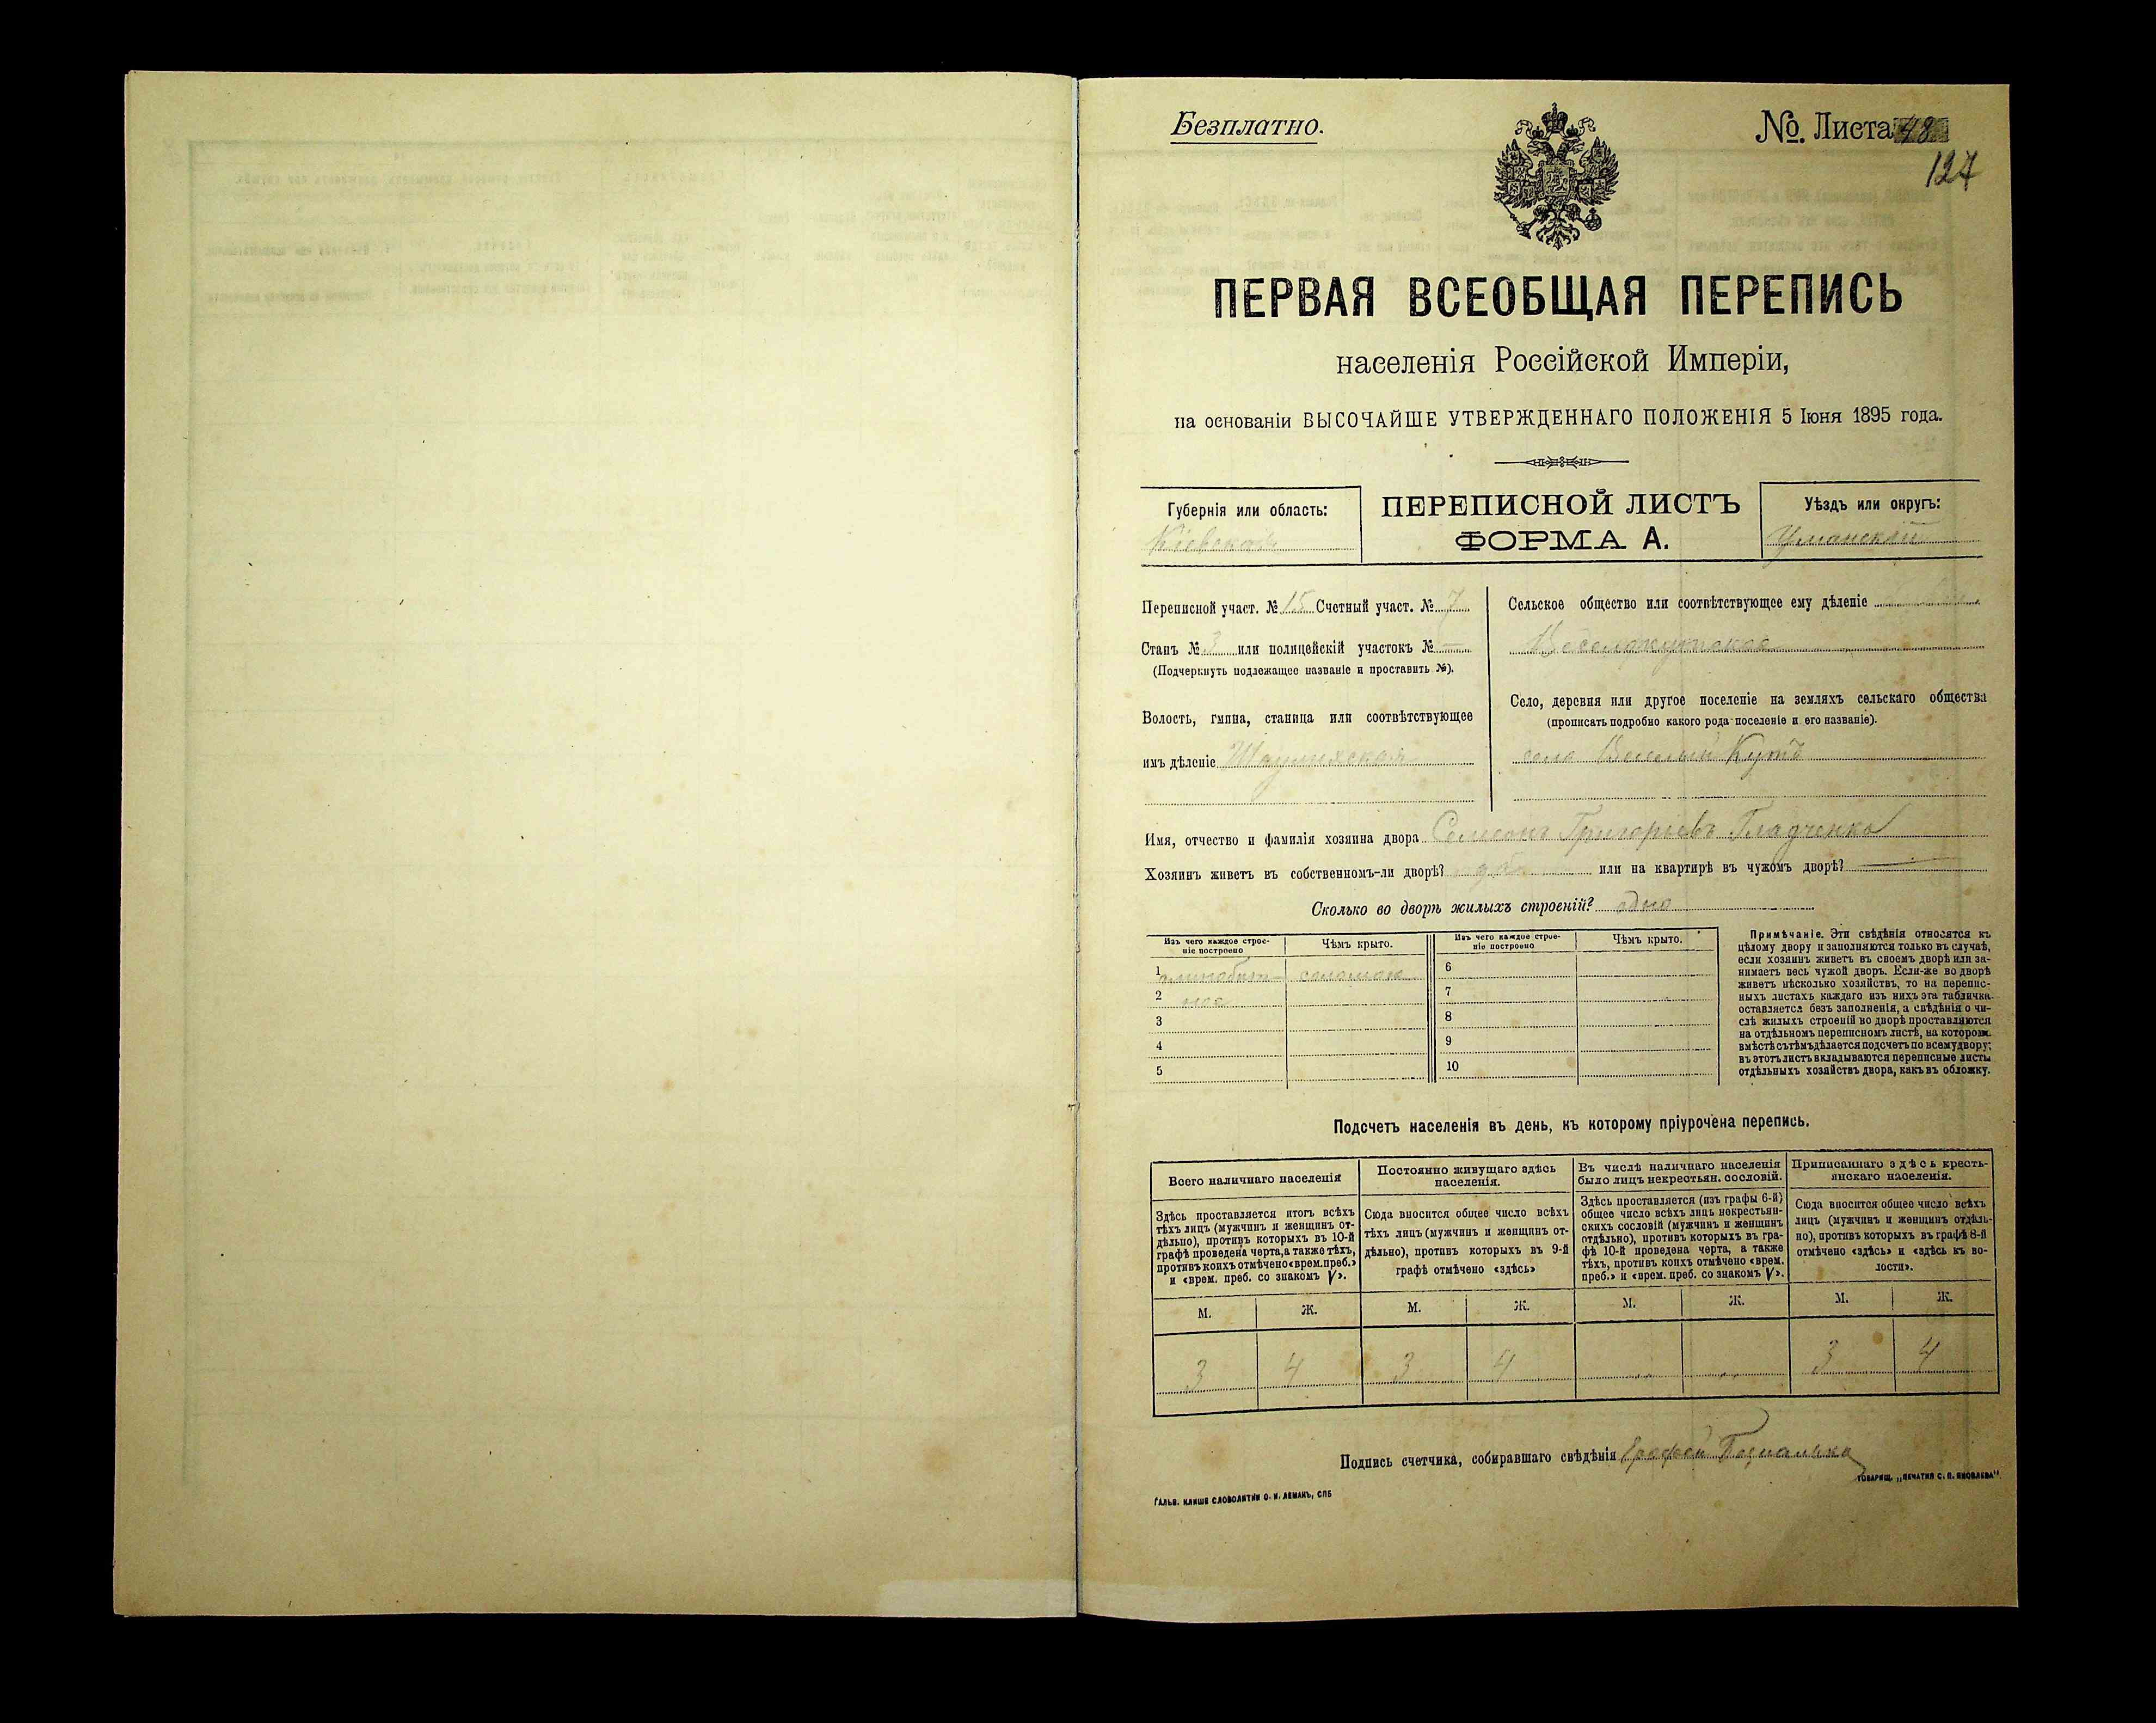 Безплатно.
№ Листа 48
127
ПЕРВАЯ ВСЕОБЩАЯ ПЕРЕПИСЬ
населенія Россійской Имперіи,
на основаніи ВЫСОЧАЙШЕ УТВЕРЖДЕННАГО ПОЛОЖЕНІЯ 5 Іюня 1895 года.
Губернія или область:
Кіевская
ПЕРЕПИСНОЙ ЛИСТЪ
ФОРМА А.
Уѣздъ или округъ:
Уманскій
Переписной участ. № 15 Счетный участ. № 7
Станъ № 3 или полицейскій участокъ № —
(Подчеркнуть подлежащее названіе и проставить №).
Волость, гмина, станица или соотвѣтствующее
имъ дѣленіе Шаулихская
Сельское общество или соотвѣтствующее ему дѣленіе
Веселокутское
Село, деревня или другое поселеніе на земляхъ сельскаго общества
(прописать подробно какого рода поселеніе и его названіе).
село Веселый Кутъ
Имя, отчество и фамилія хозяина двора Самсонъ Григорьевъ Гладченко
Хозяинъ живетъ въ собственномъ-ли дворѣ? да или на квартирѣ въ чужомъ дворѣ? —
Сколько во дворѣ жилыхъ строеній? одно
Изъ чего каждое строе-
ніе построено
Чѣмъ крыто.
Изъ чего каждое строе-
ніе построено
Чѣмъ крыто.
1 глинобит- соломой
2 ное
3
4
5
6
7
8
9
10
Примѣчаніе. Эти свѣдѣнія относятся къ
цѣлому двору и заполняются только въ случаѣ,
если хозяинъ живетъ въ своемъ дворѣ или за-
нимаетъ весь чужой дворъ. Если-же во дворѣ
живетъ нѣсколько хозяйствъ, то на перепис-
ныхъ листахъ каждаго изъ нихъ эта табличка
оставляется безъ заполненія, а свѣдѣнія о чи-
слѣ жилыхъ строеній во дворѣ проставляются
на отдѣльномъ переписномъ листѣ, на которомъ
вмѣстѣ съ тѣмъ дѣлается подсчетъ по всему двору;
въ этотъ листъ вкладываются переписные листы
отдѣльныхъ хозяйствъ двора, какъ въ обложку.
Подсчетъ населенія въ день, къ которому пріурочена перепись.
Всего наличнаго населенія
Здѣсь проставляется итогъ всѣхъ
тѣхъ лицъ (мужчинъ и женщинъ от-
дѣльно), противъ которыхъ въ 10-й
графѣ проведена черта, а также тѣхъ,
противъ коихъ отмѣчено «врем. преб.»
и «врем. преб. со знакомъ V».
Постоянно живущаго здѣсь
населенія.
Сюда вносится общее число всѣхъ
тѣхъ лицъ (мужчинъ и женщинъ от-
дѣльно), противъ которыхъ въ 9-й
графѣ отмѣчено «здѣсь»
Въ числѣ наличнаго населенія
было лицъ некрестьян. сословій.
Здѣсь проставляется (изъ графы 6-й)
общее число всѣхъ лицъ некрестьян-
скихъ сословій (мужчинъ и женщинъ
отдѣльно), противъ которыхъ въ гра-
фѣ 10-й проведена черта, а также
тѣхъ, противъ коихъ отмѣчено «врем.
преб.» и «врем. преб. со знакомъ V».
Приписаннаго здѣсь кресть-
янскаго населенія.
Сюда вносится общее число всѣхъ
лицъ (мужчинъ и женщинъ отдѣль-
но), противъ которыхъ въ графѣ 8-й
отмѣчено «здѣсь» и «здѣсь къ во-
лости».
М. Ж. М. Ж. М. Ж. М. Ж.
3 4 3 4 3 4
Подпись счетчика, собиравшаго свѣдѣнія
ГАЛЬВ. КЛИШЕ СЛОВОЛИТНИ О. И. ЛЕМАНЪ, СПБ
ТОВАРИЩ. „ПЕЧАТНЯ С. П. ЯКОВЛЕВА“.